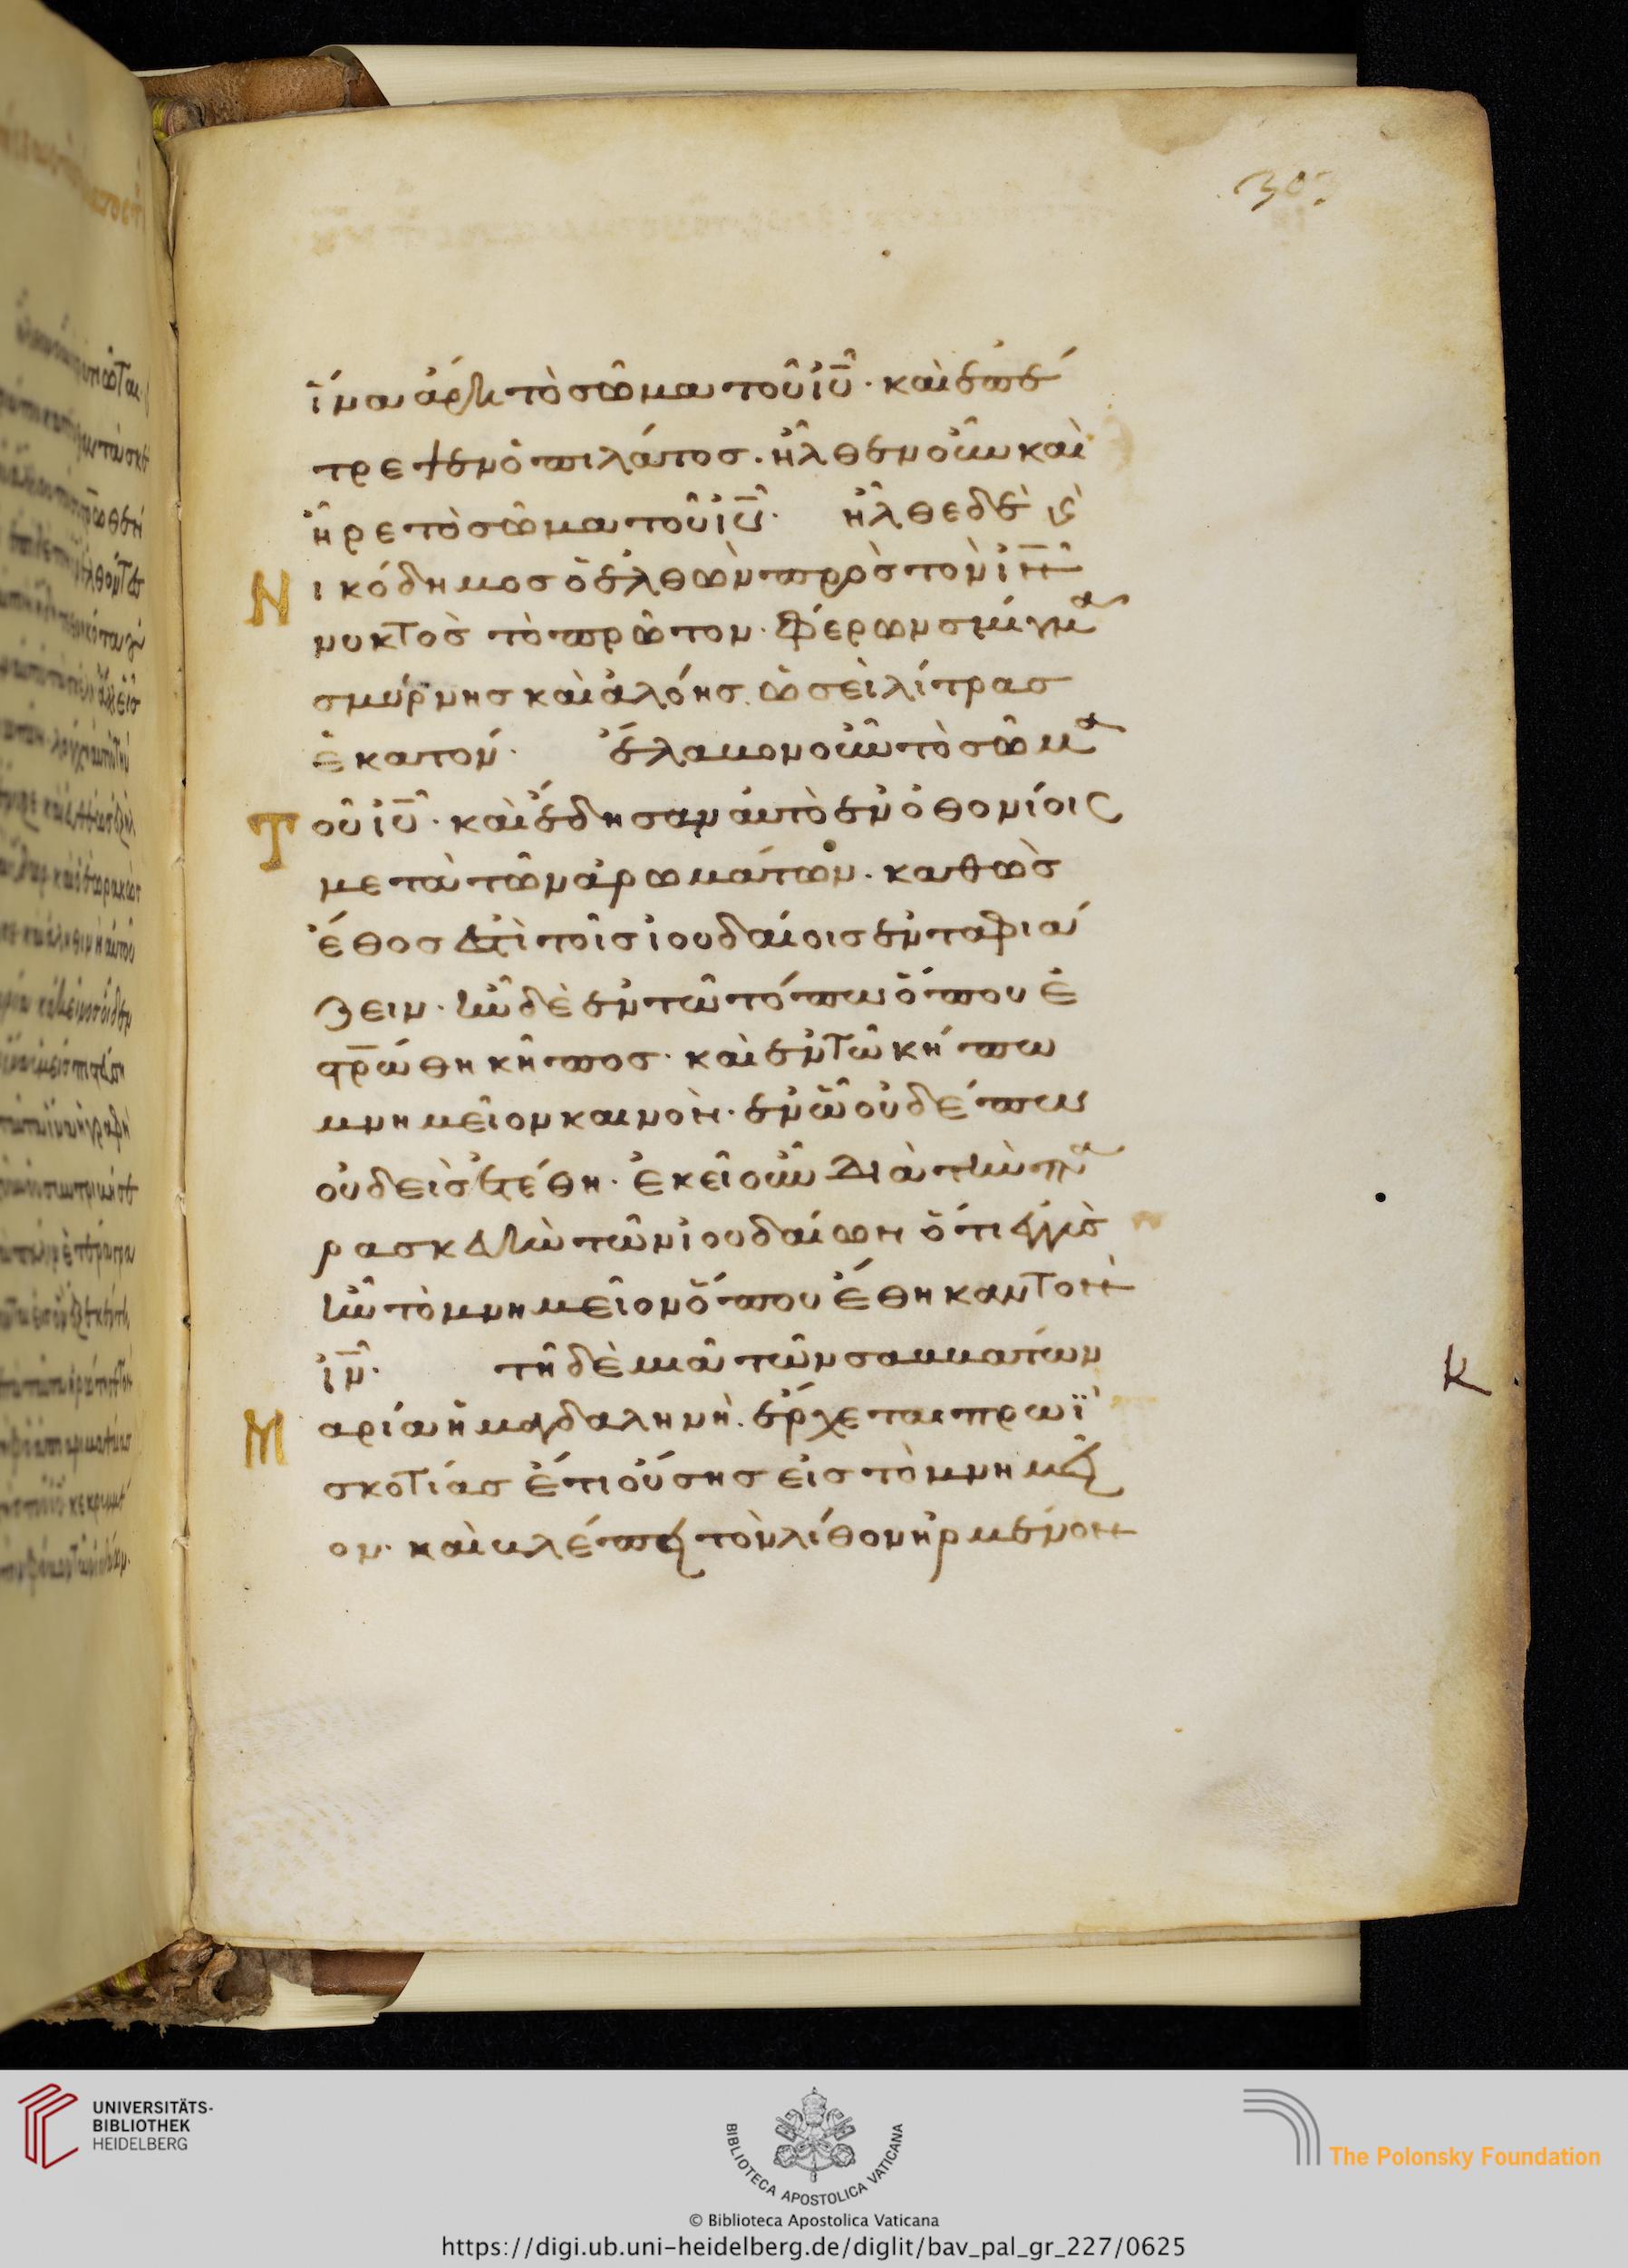 303
ἵνα ἄρη τὸ σῶμα τοῦ ἰῦ· καὶ ἐπέ
τρεψεν ὁ πιλάτος. ἦλθεν οὖν καὶ
ἦρε τὸ σῶμα τοῦ ἰῦ. ἦλθε δὲ ϗ
Νικόδημος ὁ ἐλθὼν πρὸς τὸν ἰν
νυκτὸς τὸ πρῶτον. φέρων σμίγμα
σμύρνης καὶ ἀλόης. ὡσεὶ λίτρας
ἑκατόν. ἔλαβον οὖν τὸ σῶμα
Τοῦ ἰῦ. καὶ ἔδησαν αὐτὸ ἐν ὀθονίοις
μετὰ τῶν ἀρωμάτων. καθὼς
ἔθος ἐστὶ τοῖς ἰουδαίοις ἐνταφιά
ζειν. ἦν δὲ ἐν τῶ τόπω ὅπου ἐ
στρώθη κῆπος. καὶ ἐν τῶ κήπω
μνημεῖον καινὸν. ἐν ὧ οὐδέπω
οὐδεὶς ἐτέθη. ἐκεῖ οὖν διὰ τὴν πα
ρασκευὴν τῶν ἰουδαίων ὅτι ἐγγὺς
ἦν τὸ μνημεῖον ὅπου ἔθηκαν τὸν
ἰν. τῆ δὲ μιᾶ τῶν σαββάτων
Μαρία ἡ μαγδαληνὴ. ἔρχεται πρωῒ
σκοτίας ἔτι οὔσης εἰς τὸ μνημεῖ
ον. καὶ βλέπει τὸν λίθον ἠρμένον
κ
UNIVERSITÄTS-
BIBLIOTHEK
HEIDELBERG
BIBLIOTECA APOSTOLICA VATICANA
© Biblioteca Apostolica Vaticana
The Polonsky Foundation
https://digi.ub.uni-heidelberg.de/diglit/bav_pal_gr_227/0625